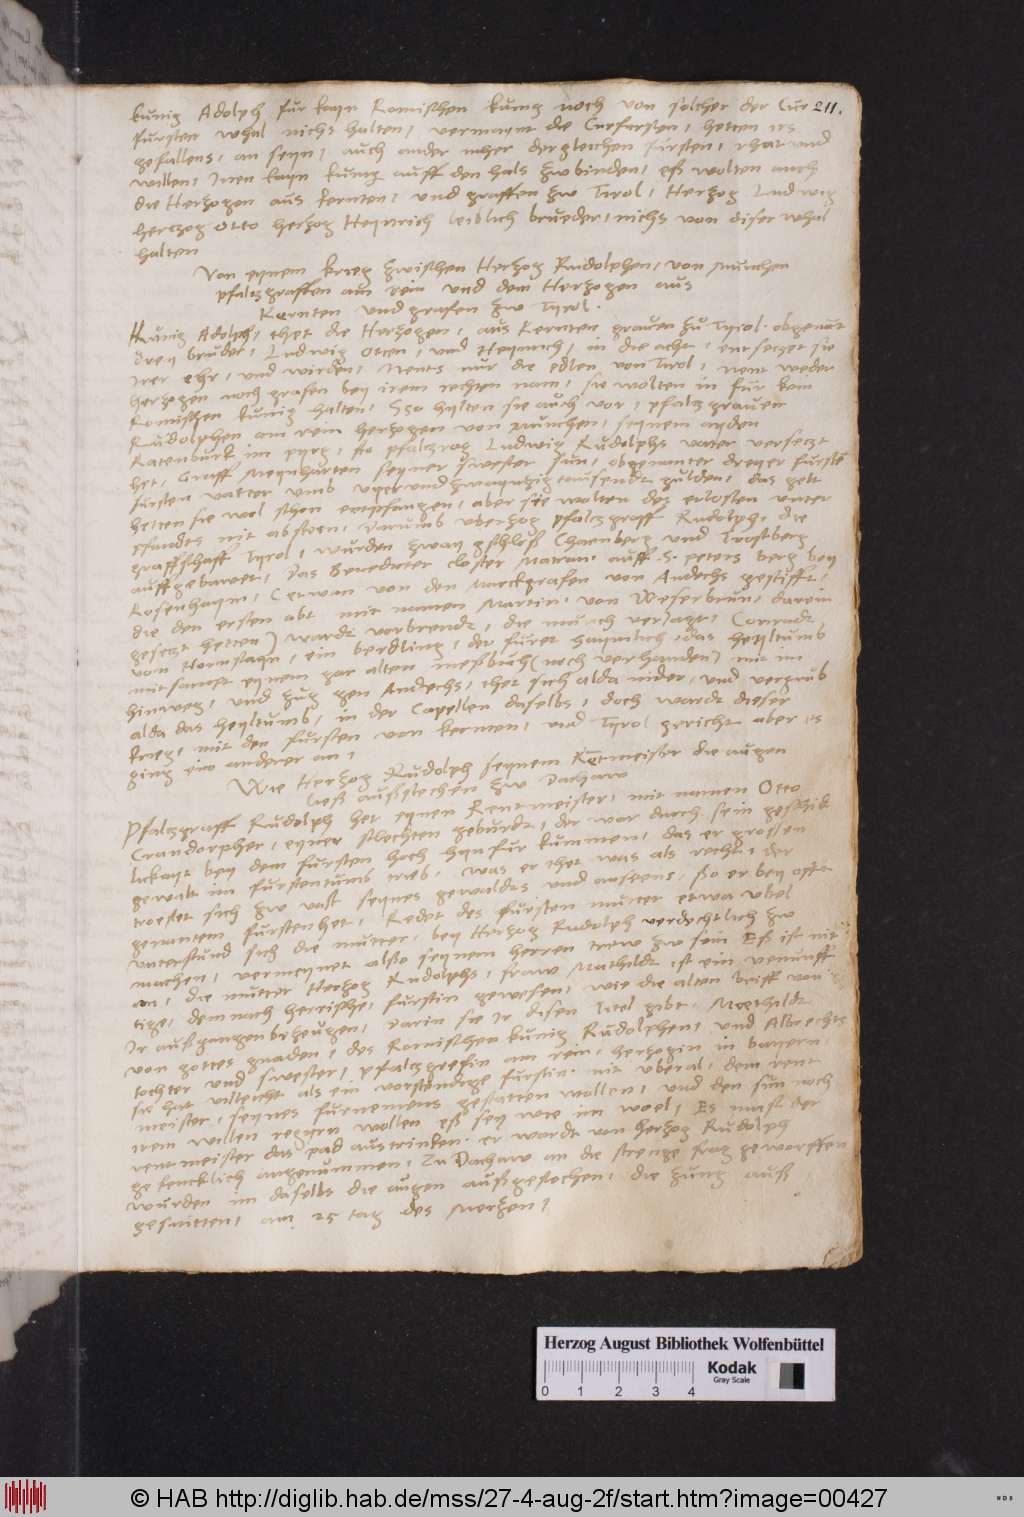 kunig Adolph fur kayn Romischen kunig noch von solcher der Cur 211.
fursten whal nicht halten, vermaynt die Curfursten, hetten irs
gefallens, an seyn, auch ander mher dergleichen fursten, rhat und
willen, Inen kayn kunig auff den hals zwbinden, eß wolten auch
die Herzogen aus kernten, und graffen zw Tirol, Herzog Ludwig
herczog Otto herzog Heynrich leiblich brueder, nichs von diser whal
halten
Von eynem krieg zwischen Herzog Rudolphen, von Munchen
pfalczgraffen am rein und dem Herzogen aus
Kernten und grafen zw Tyrol.
Kunig Adolph, thet die Herzogen, aus Kernten graven zu Tyrol. obgenant
drey bruder, Ludwig Otten, und Heynrich, in die acht, entseczet sie
Irer ehr, und wirden, Nents nur die edlen von Tirol, nent weder
herzogen noch grafen bey irem rechten nam, sie wolten in fur kain
Romischen kunig halten, Sso hylten sie auch vor, pfalczgraven
Rudolphen am rein herzogen von Munchen, seynem ayden
Ratenburk im pyrg, so pfalczgrag Ludwig Rudolphs vatter verseczt
het, Graff Meynharten seyner swester sun, obgenanter dreyer furste
fursten vatter umb vyer und zwayntzig tausendt gulden, das gelt
hetten sie wol schon entpfangen, aber sie wolten des erlosten unter
pfandes nit absteen, Darumb uberzog pfalczgraff Rudolph, die
graffschafft Tyrol, wurden zway gschlosß Chaenberg und Trostberg
auffgebauet, Das Benedicter closter Matran auff S. peters berg bey
Rosenhaym, (etwan von den Marckgrafen von Andechs gestifft,
die den ersten abt mit namen Martin von Weserbrun, darein
gesetzt hetten) wardt vorbrendt, die munch verjagt, Conradt
vom Hornstayn, ein berdling, der furet haymlich das heyltumb
mitsampt eynem gar alten meßbuch (noch verhanden) mit im
hinweg, und zug gen Andechs, thet sich alda nider, und vergrub
alda das heyltumb, in der Capellen daselbs, doch wardt dieser
krieg, mit den fursten von kernten, und Tyrol gericht aber es
ging ein anderer an,
Wie Herzog Rudolph seynem Retmeister die augen
ließ außstechen zw Dachaw
Pfalczgraff Rudolph het eynen Rentmeister, mit namen Otto
Crandorpher, eyner slechten geburdt, der war durch sein geschik
lickayt bey dem fursten hoch hynfur kummen, das er grossen
gewalt im furstentumb trieb, was er thet was als recht, der
troestet sich zw vast seynes gewaldts und anseens, so er bey offt
genantem fursten het, Redet des fursten mutter etwa ubel
unterstund sich die mutter, bey Herzog Rudolph verdechtlich zw
machen, vermeynet also seynem herren trew zw sein Eß ist nit
an, die mutter Herzog Rudolphs, fraw Mathildt ist ein vernunff
tige, demnach herrische, furstin gewesen, wie die alten brieff von
Ir außgangen bezeugen, Darin sie Ir disen titel gibt, Mecthildt
von gottes gnaden, des Romischen kunig Rudolphen, und Albrechts
tochter und swester, pfalczgrefin am rein, herzogin in bayern,
sie hat villeicht als ein vorstandige furstin, nit uberal, dem rent
meister, seynes furnemens gestatten wollen, und den sun noch
irem willen regyrn wollen eß sey wie im woel, Es must der
rentmeister das pad austrinken, er wardt von herzog Rudolph
gefencklich angenummen, Zu Dachaw an die strenge frag geworffen
wurden im daselbs die augen außgestochen, die zung auß
gesnitten, am 25 tag des Merzen,
Herzog August Bibliothek Wolfenbüttel
Kodak
Gray Scale
0 1 2 3 4
© HAB http://diglib.hab.de/mss/27-4-aug-2f/start.htm?image=00427